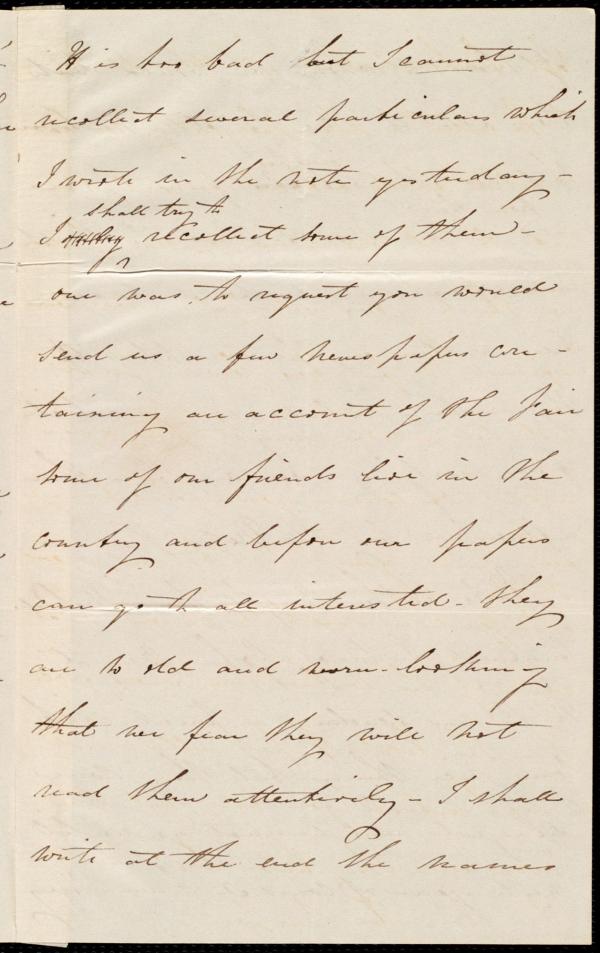 It is too bad but I cannot
recollect several particulars which
I wrote in the note yesterday -
shall try to
I recollect some of them -
one was, to request you would
send us a few newspapers con -
taining an account of the Fair
some of our friends live in the
country and before our papers
can go to all interested - they
are so old and worn-looking
that we fear they will not
read them attentively - I shall
write at the end the names